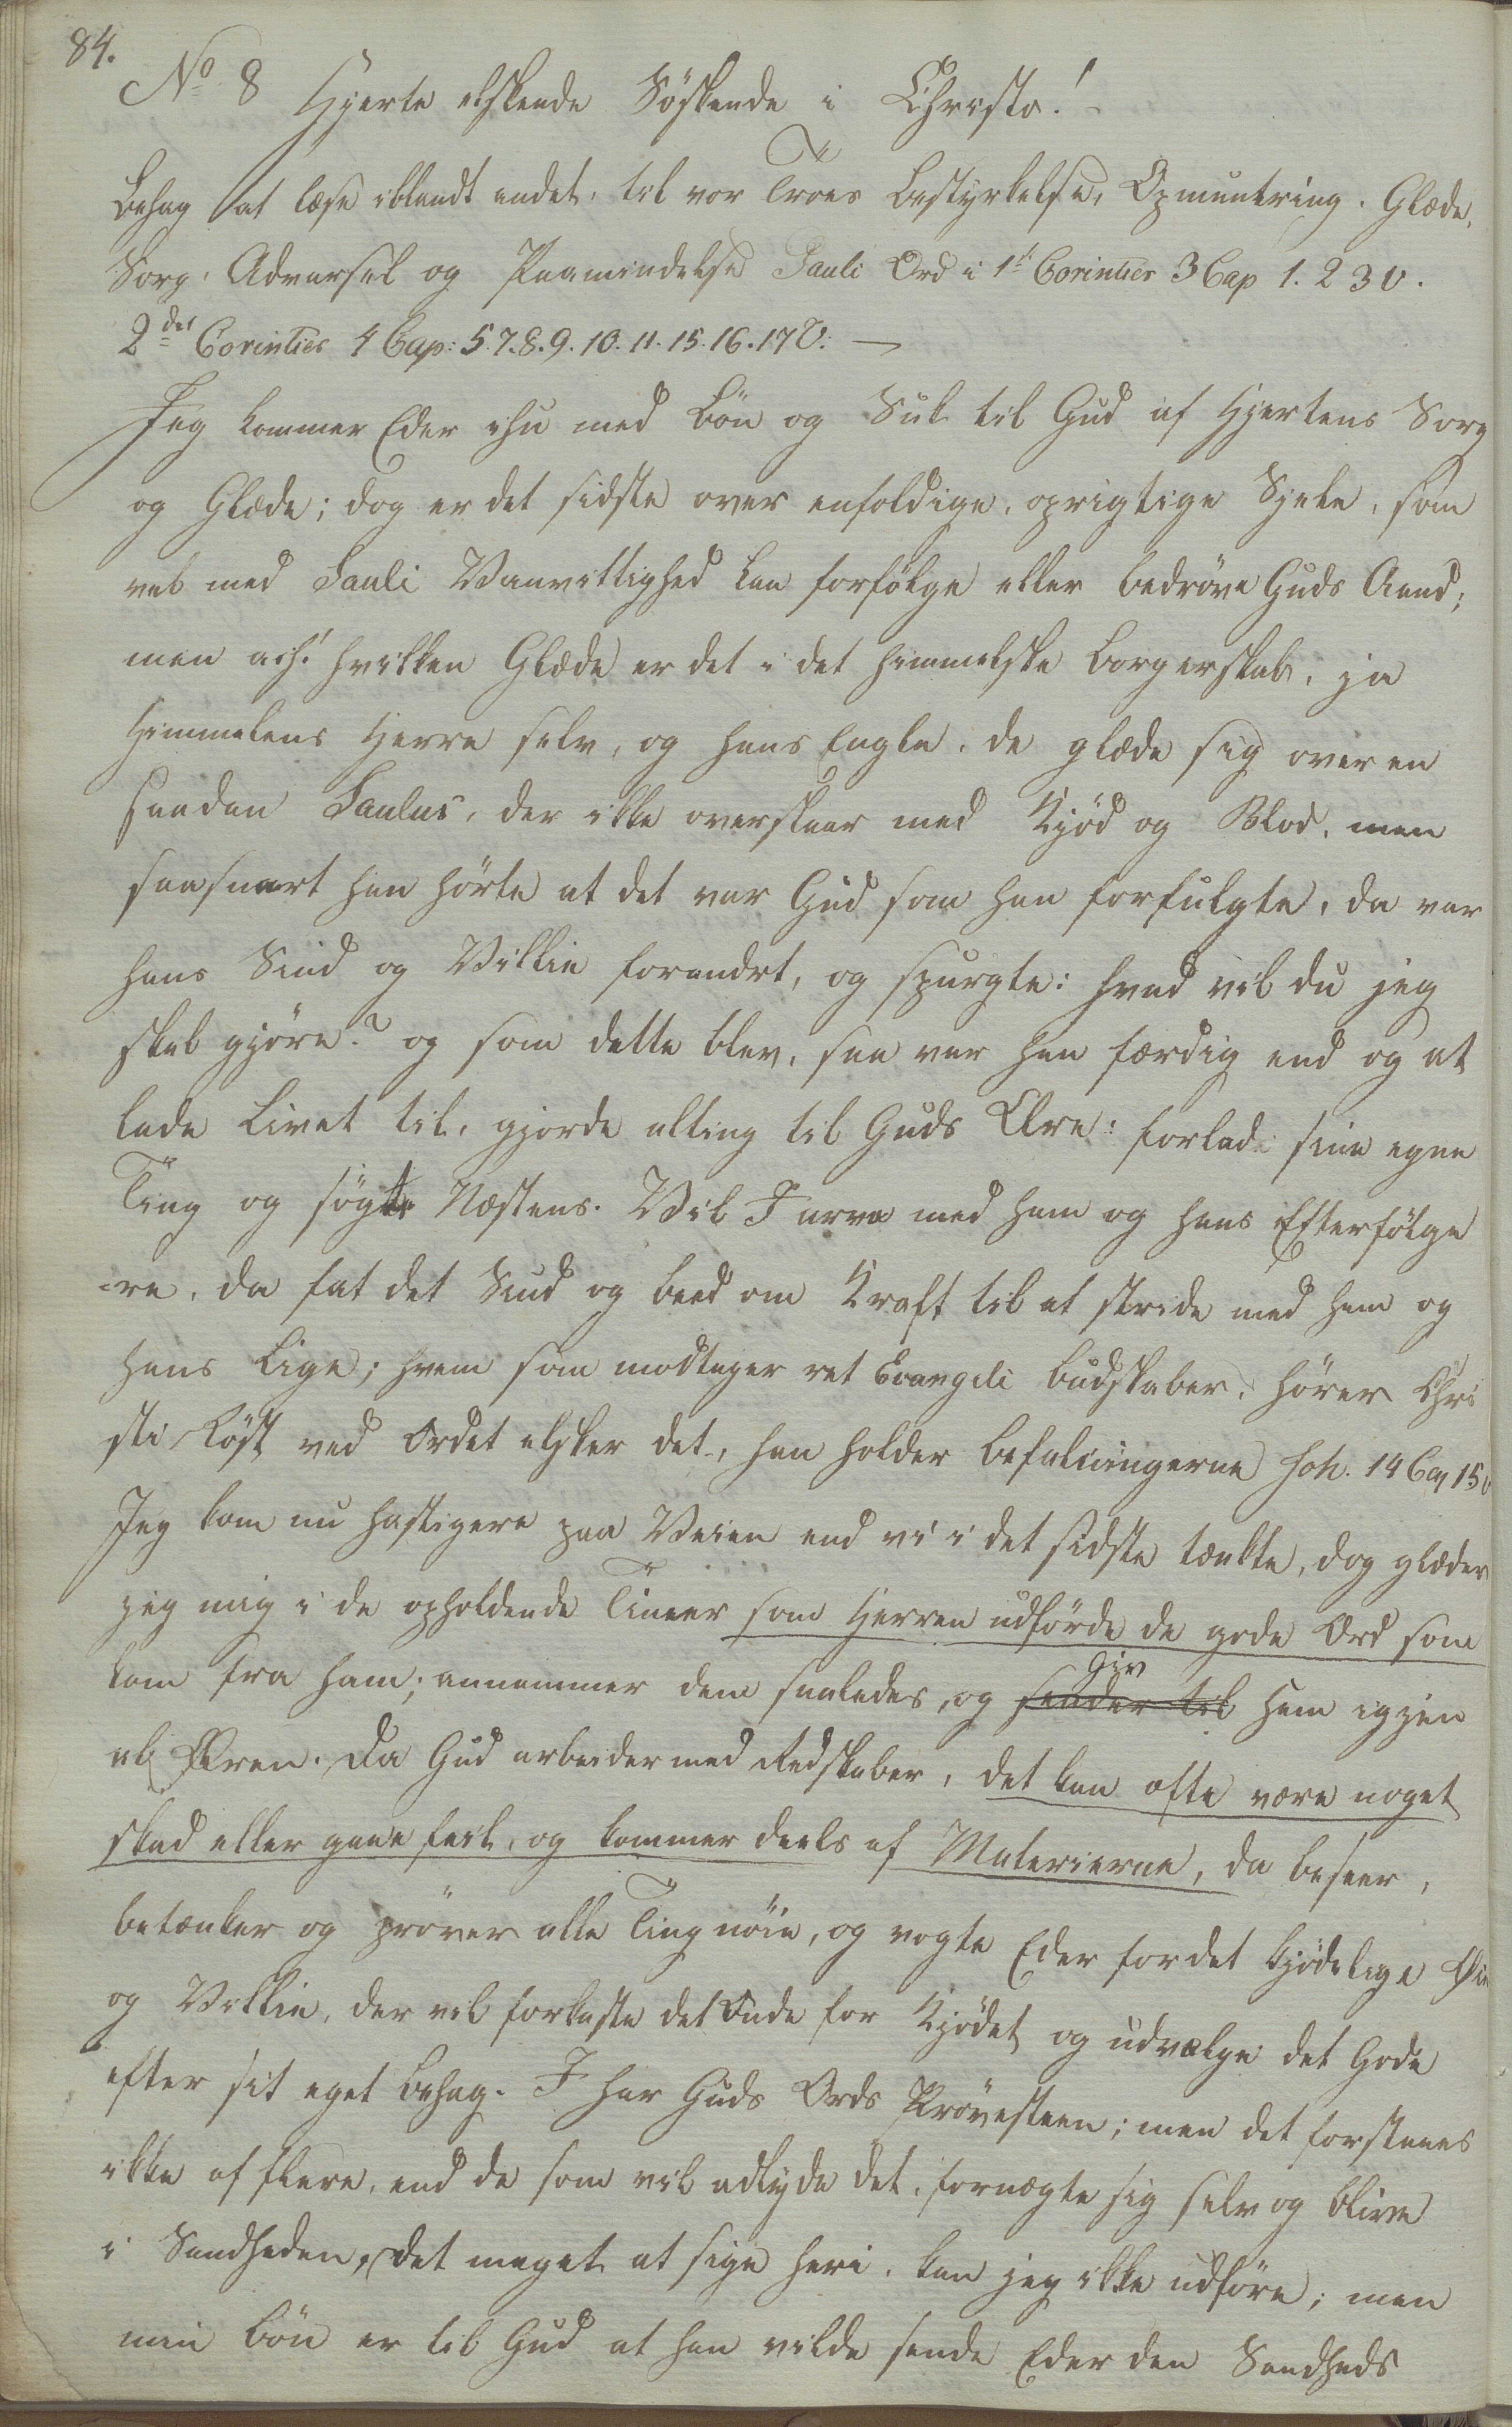 84.
No 8 Hjerte elskende Söskende i Christo!
Behag at læse iblandt andet, til vor Troes Bestyrkelse, Opmuntring. Glæde,
Sorg, Advarsel og Paamindelse Pauli Ord i 1ste Corintier 3 Cap 1. 2 3 V.
2det Corintier 4 Cap: 5. 7. 8. 9. 10. 11. 15. 16. 17 V: —
Jeg kommer Eder ihu med Bön og Suk til Gud af Hjertens Sorg
og Glæde; dog er det sidste over enfoldige, oprigtige Sjele, som
vel med Sauli Vanvittighed kan forfölge eller bedröve Guds Aand;
men ach! hvilken Glæde er det i det himmelske Borgerskab, ja
Himmelens Herre selv, og hans Engle, de glæde sig over en
saadan Saulus, der ikke overlagde med Kjöd og Blod, men
saasnart han hörte at det var Gud som han forfulgte, da var
hans Sind og Villie forandret, og spurgte: hvad vil du jeg
skal gjöre? og som dette blev, saa var han færdig end og at
lade Livet til, gjorde alting til Guds Ære: forlod sine egne
Ting og sögte Næstens. Vil I arve med ham og hans Efterfölge
-re, da fat det Sind og beed om Kraft til at stride med ham og
hans Lige; hvem som modtager ret Evangeli budskaber, hörer Chri
sti Röst ved Ordet elsker det, han holder Befalningerne Joh. 14 Cap 15 v
Jeg kom nu hastigere paa Veien end vi i det sidste tænkte, dog glæder
jeg mig i de opholdende Timer som Herren udförde de gode Ord som
kom fra ham; annammer dem saaledes, og sender til Giv ham igjen
al Æren. Da Gud arbeider med Redskaber, det kan ofte være noget
skad eller gaae feil, og kommer deels af Materierne, da beseer,
betænker og pröver alle Ting nöie, og vogte Eder for det kjödelige Öie
og Villie, der vil forkaste det Onde for Kjödet og udvælge det Gode
efter sit eget Behag. I har Guds Ords Prövesteen; men det forstaaes
ikke af flere, end de som vil adlyde det, fornægte sig selv og blive
i Sandheden, det meget at sige heri, kan jeg ikke udföre; men
min Bön er til Gud at han vilde sende Eder den Sandheds